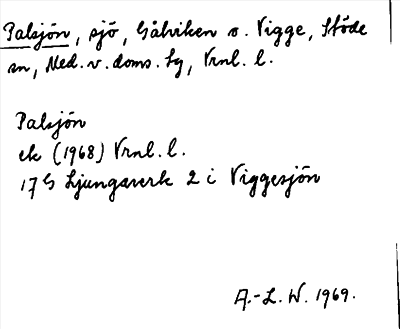 Palsjön, sjö, Gåhviken o. Vigge, Stöde
sn, Med. v. doms. Sg, Vrnl. l.
Palsjön
ek (1968) Vrnl. l.
17G Ljungaverk 2 i Viggesjön
A.-L. W. 1969.